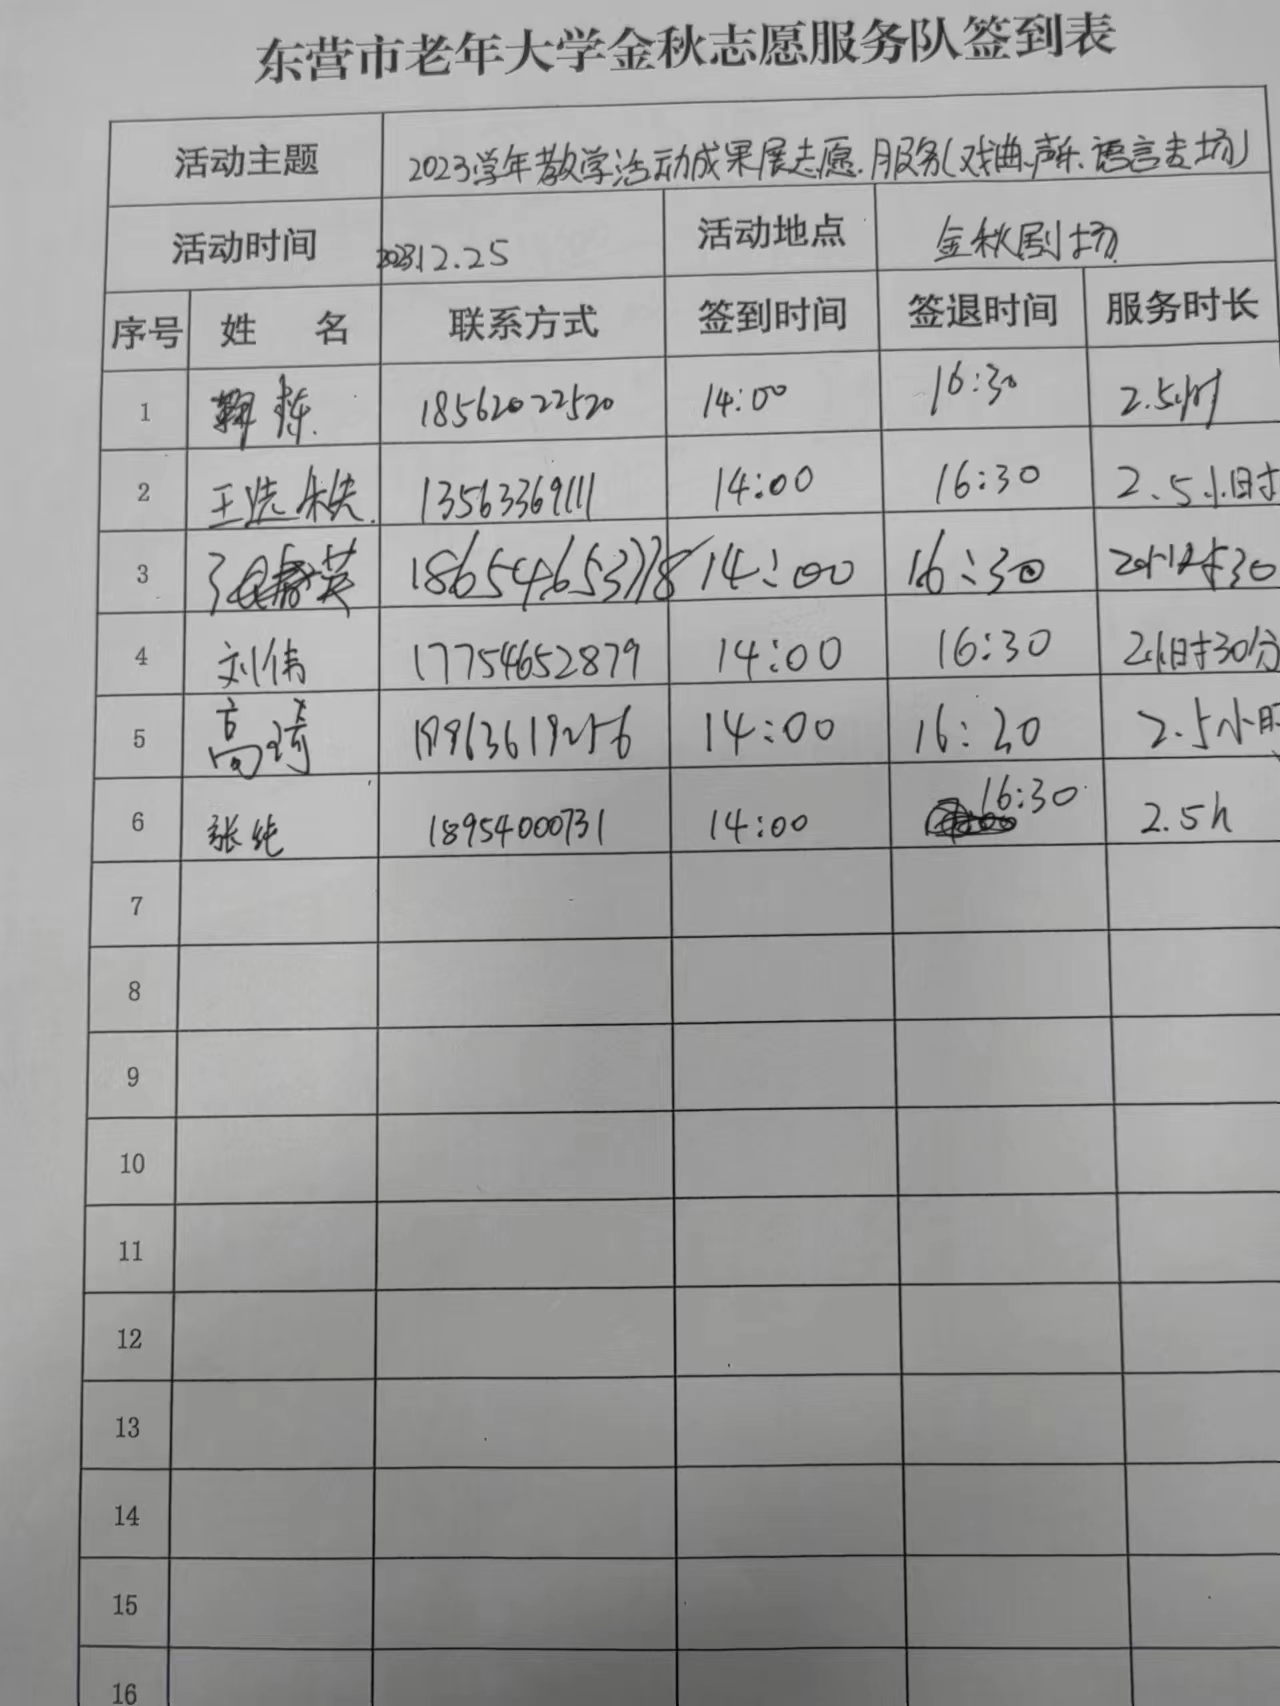 东营市老年大学金秋志愿服务队签到表
活动主题 2023学年教学活动成果展志愿服务(戏曲、声乐、语言专场)
活动时间 2023.12.25 活动地点 金秋剧场
序号 姓 名 联系方式 签到时间 签退时间 服务时长
1 18562022520 14:00 16:30 2.5小时
2 王 13563369111 14:00 16:30 2.5小时
3 英 18654653778 14:00 16:30 2小时30
4 刘伟 17754652879 14:00 16:30 2小时30分
5 高琦 19963619256 14:00 16:30 2.5小时
6 张纯 18954000731 14:00 16:30 2.5h
7
8
9
10
11
12
13
14
15
16